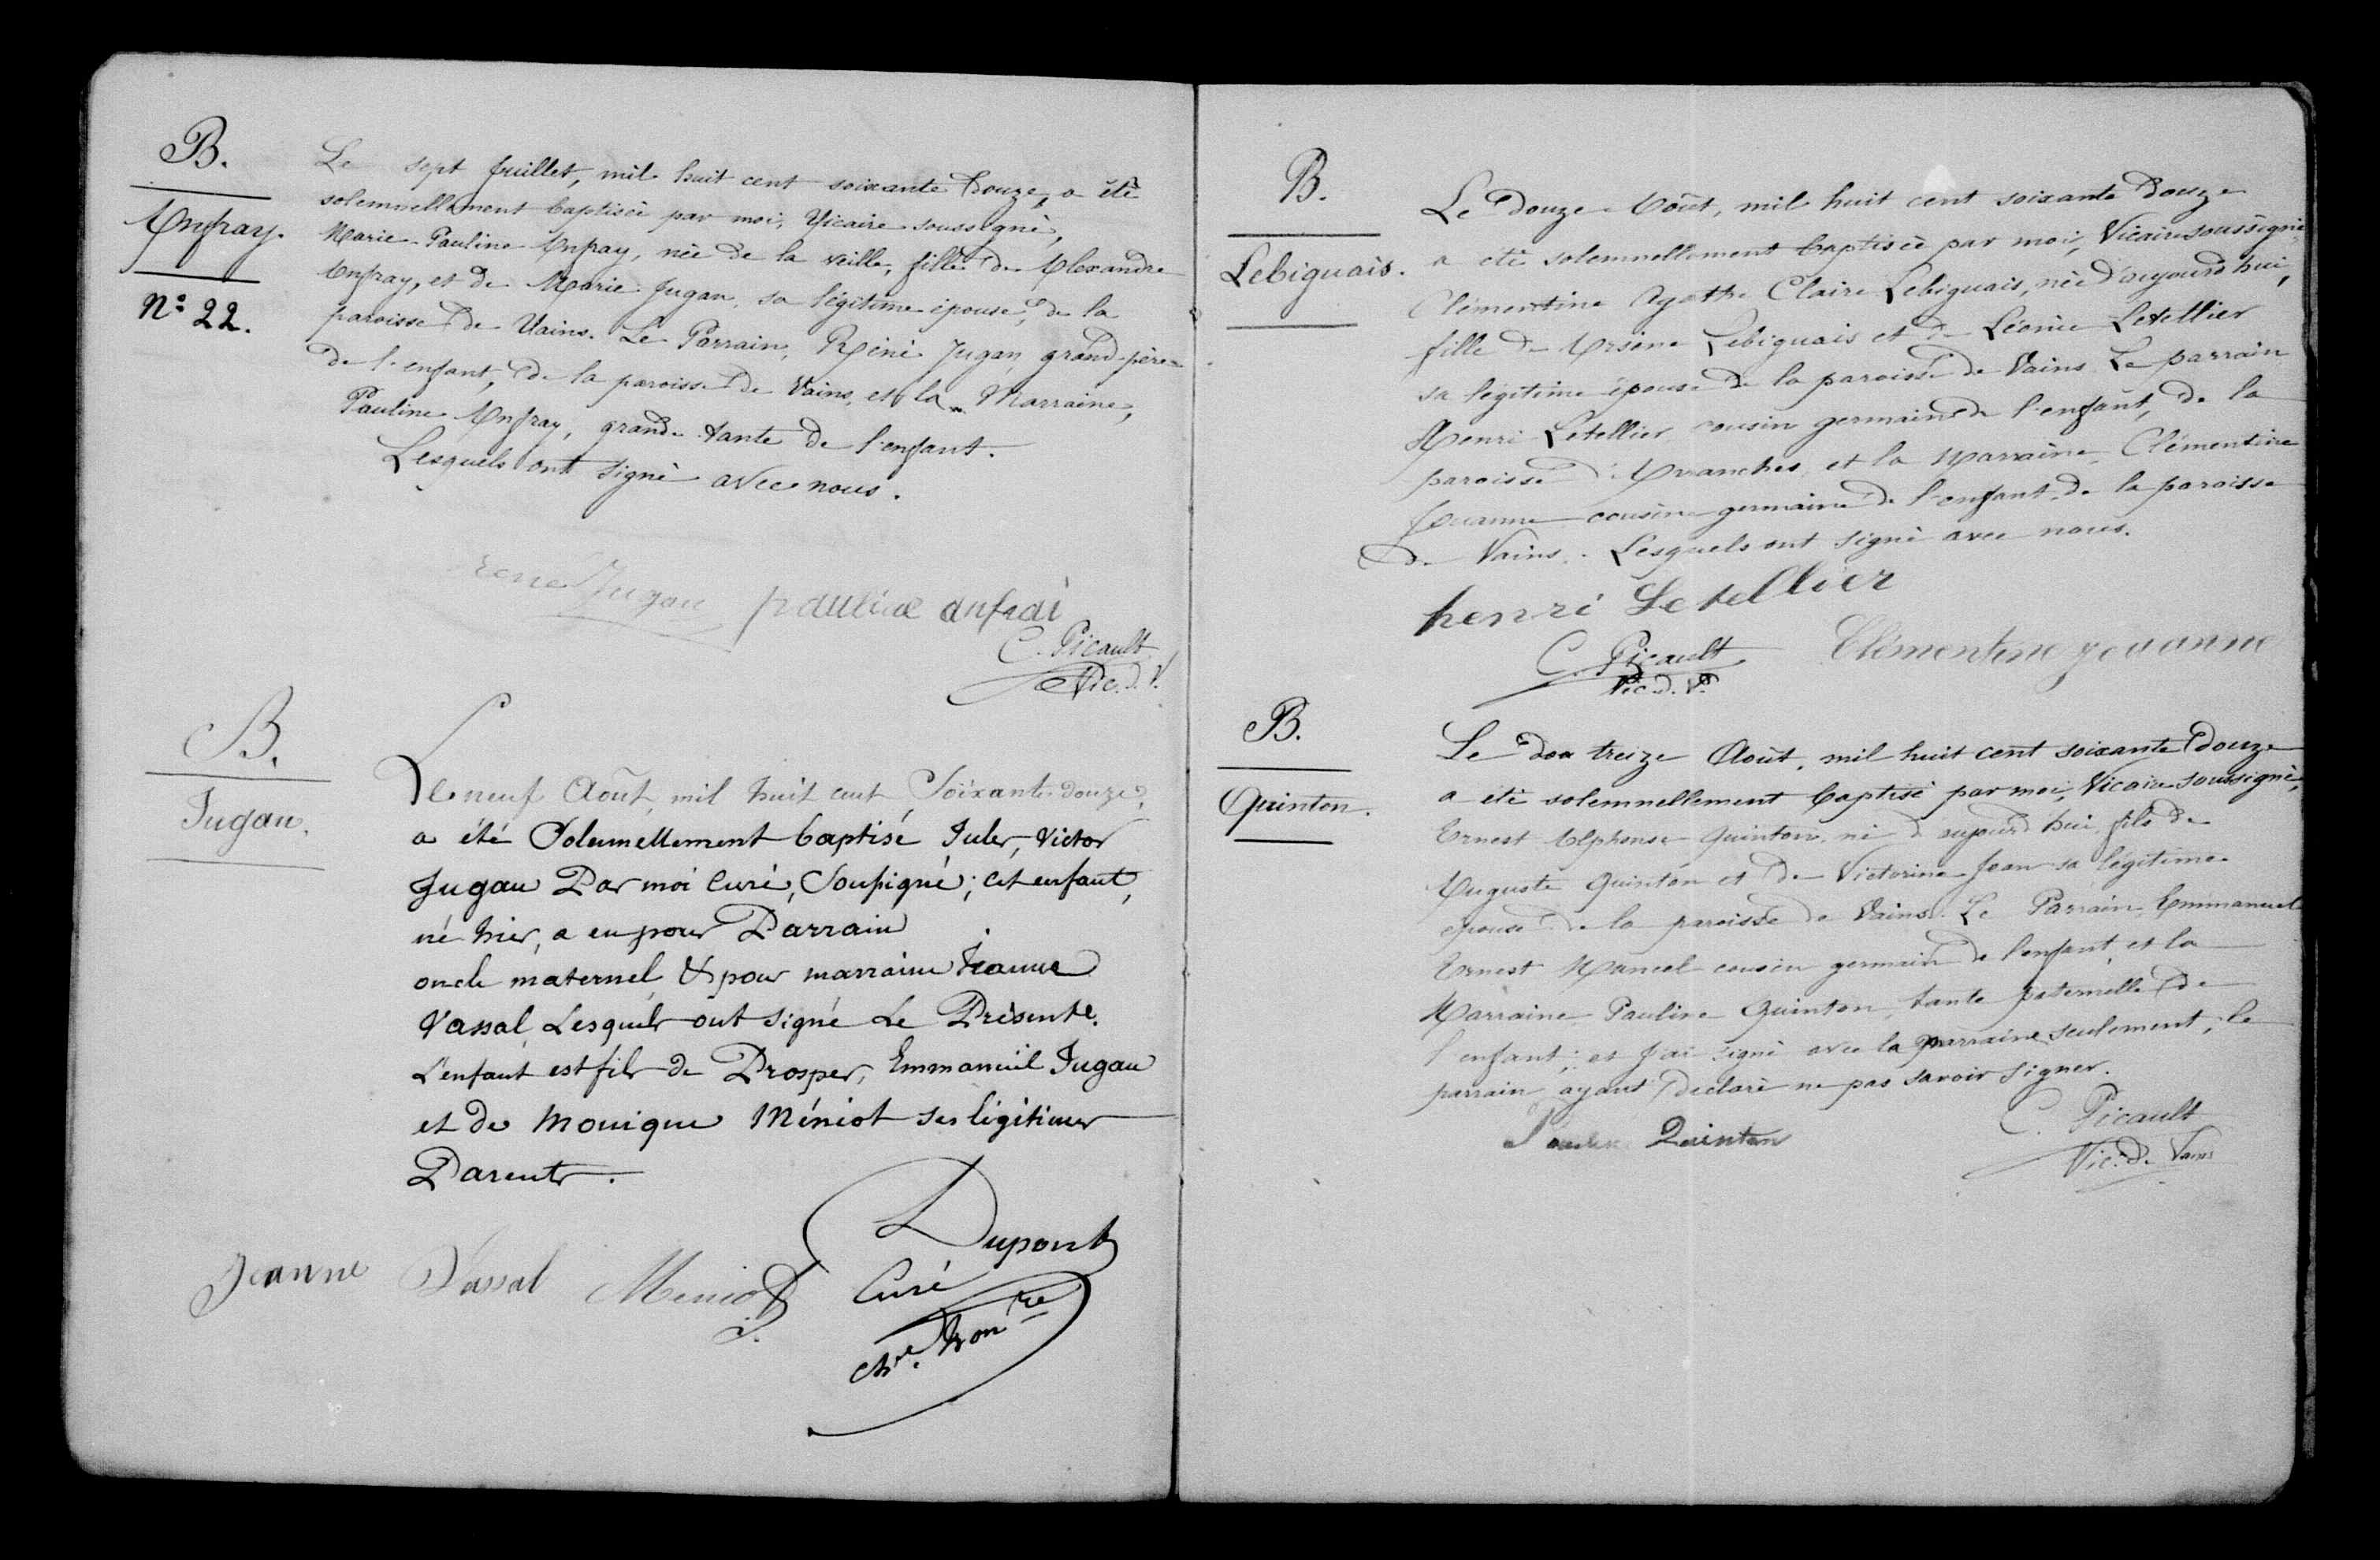 B.
Anfray.
N° 22.
Le sept Juillet, mil huit cent soixante douze, a été
solennellement baptisée par moi, Vicaire soussigné,
Marie-Pauline Anfray, née de la veille, fille de Alexandre
Anfray, et de Marie Jugan, sa légitime épouse, de la
paroisse de Vains. Le Parrain, Réné Jugan, grand-père
de l'enfant, de la paroisse de Vains, et la Marraine,
Pauline Anfray, grande tante de l'enfant.
Lesquels ont signé avec nous.
rene Jugan pauline anfrai
C. Picault
Vic. d. V.
B.
Jugan.
Le neuf Août mil huit cent Soixante-douze,
a été Solennellement baptisé Jules, Victor
Jugan Par moi Curé, Soussigné; cet enfant,
né hier, a eu pour Parrain
oncle maternel, & pour marraine Jeanne
Vassal, Lesquels ont signé Le Présente.
L'enfant est fils de Prosper, Emmanuël Jugan
et de Monique Méniot ses légitimes
Parents.
Jeanne Vassal Meniot
Dupont
Curé
Ch.ne hon.re
B.
Lebiguais.
Le douze Août, mil huit cent soixante douze
a été solennellement baptisée par moi, Vicaire soussigné
Clémentine Agathe Claire Lebiguais, née d'aujourd'hui,
fille de Arsène Lebiguais et de Léonie Letellier
sa légitime épouse de la paroisse de Vains. Le parrain
Henri Letellier cousin germain de l'enfant, de la
paroisse d'Avranches, et la Marraine, Clémentine
Jouanne cousine germaine de l'enfant, de la paroisse
de Vains. Lesquels ont signé avec nous.
henri Letellier
C. Picault
Vic. d. V.
Clémentine jouanne
B.
Quinton.
Le dou treize Août, mil huit cent soixante douze
a été solennellement baptisé par moi, Vicaire soussigné,
Ernest Alphonse Quinton, né d'aujourd'hui, fils de
Auguste Quinton et de Victorine Jean sa légitime
épouse de la paroisse de Vains. Le Parrain, Emmanuel
Ernest Mancel cousin germain de l'enfant, et la
Marraine Pauline Quinton, tante paternelle de
l'enfant; et j'ai signé avec la marraine seulement, le
parrain ayant déclaré ne pas savoir signer.
Quinton
C. Picault
Vic. de Vains